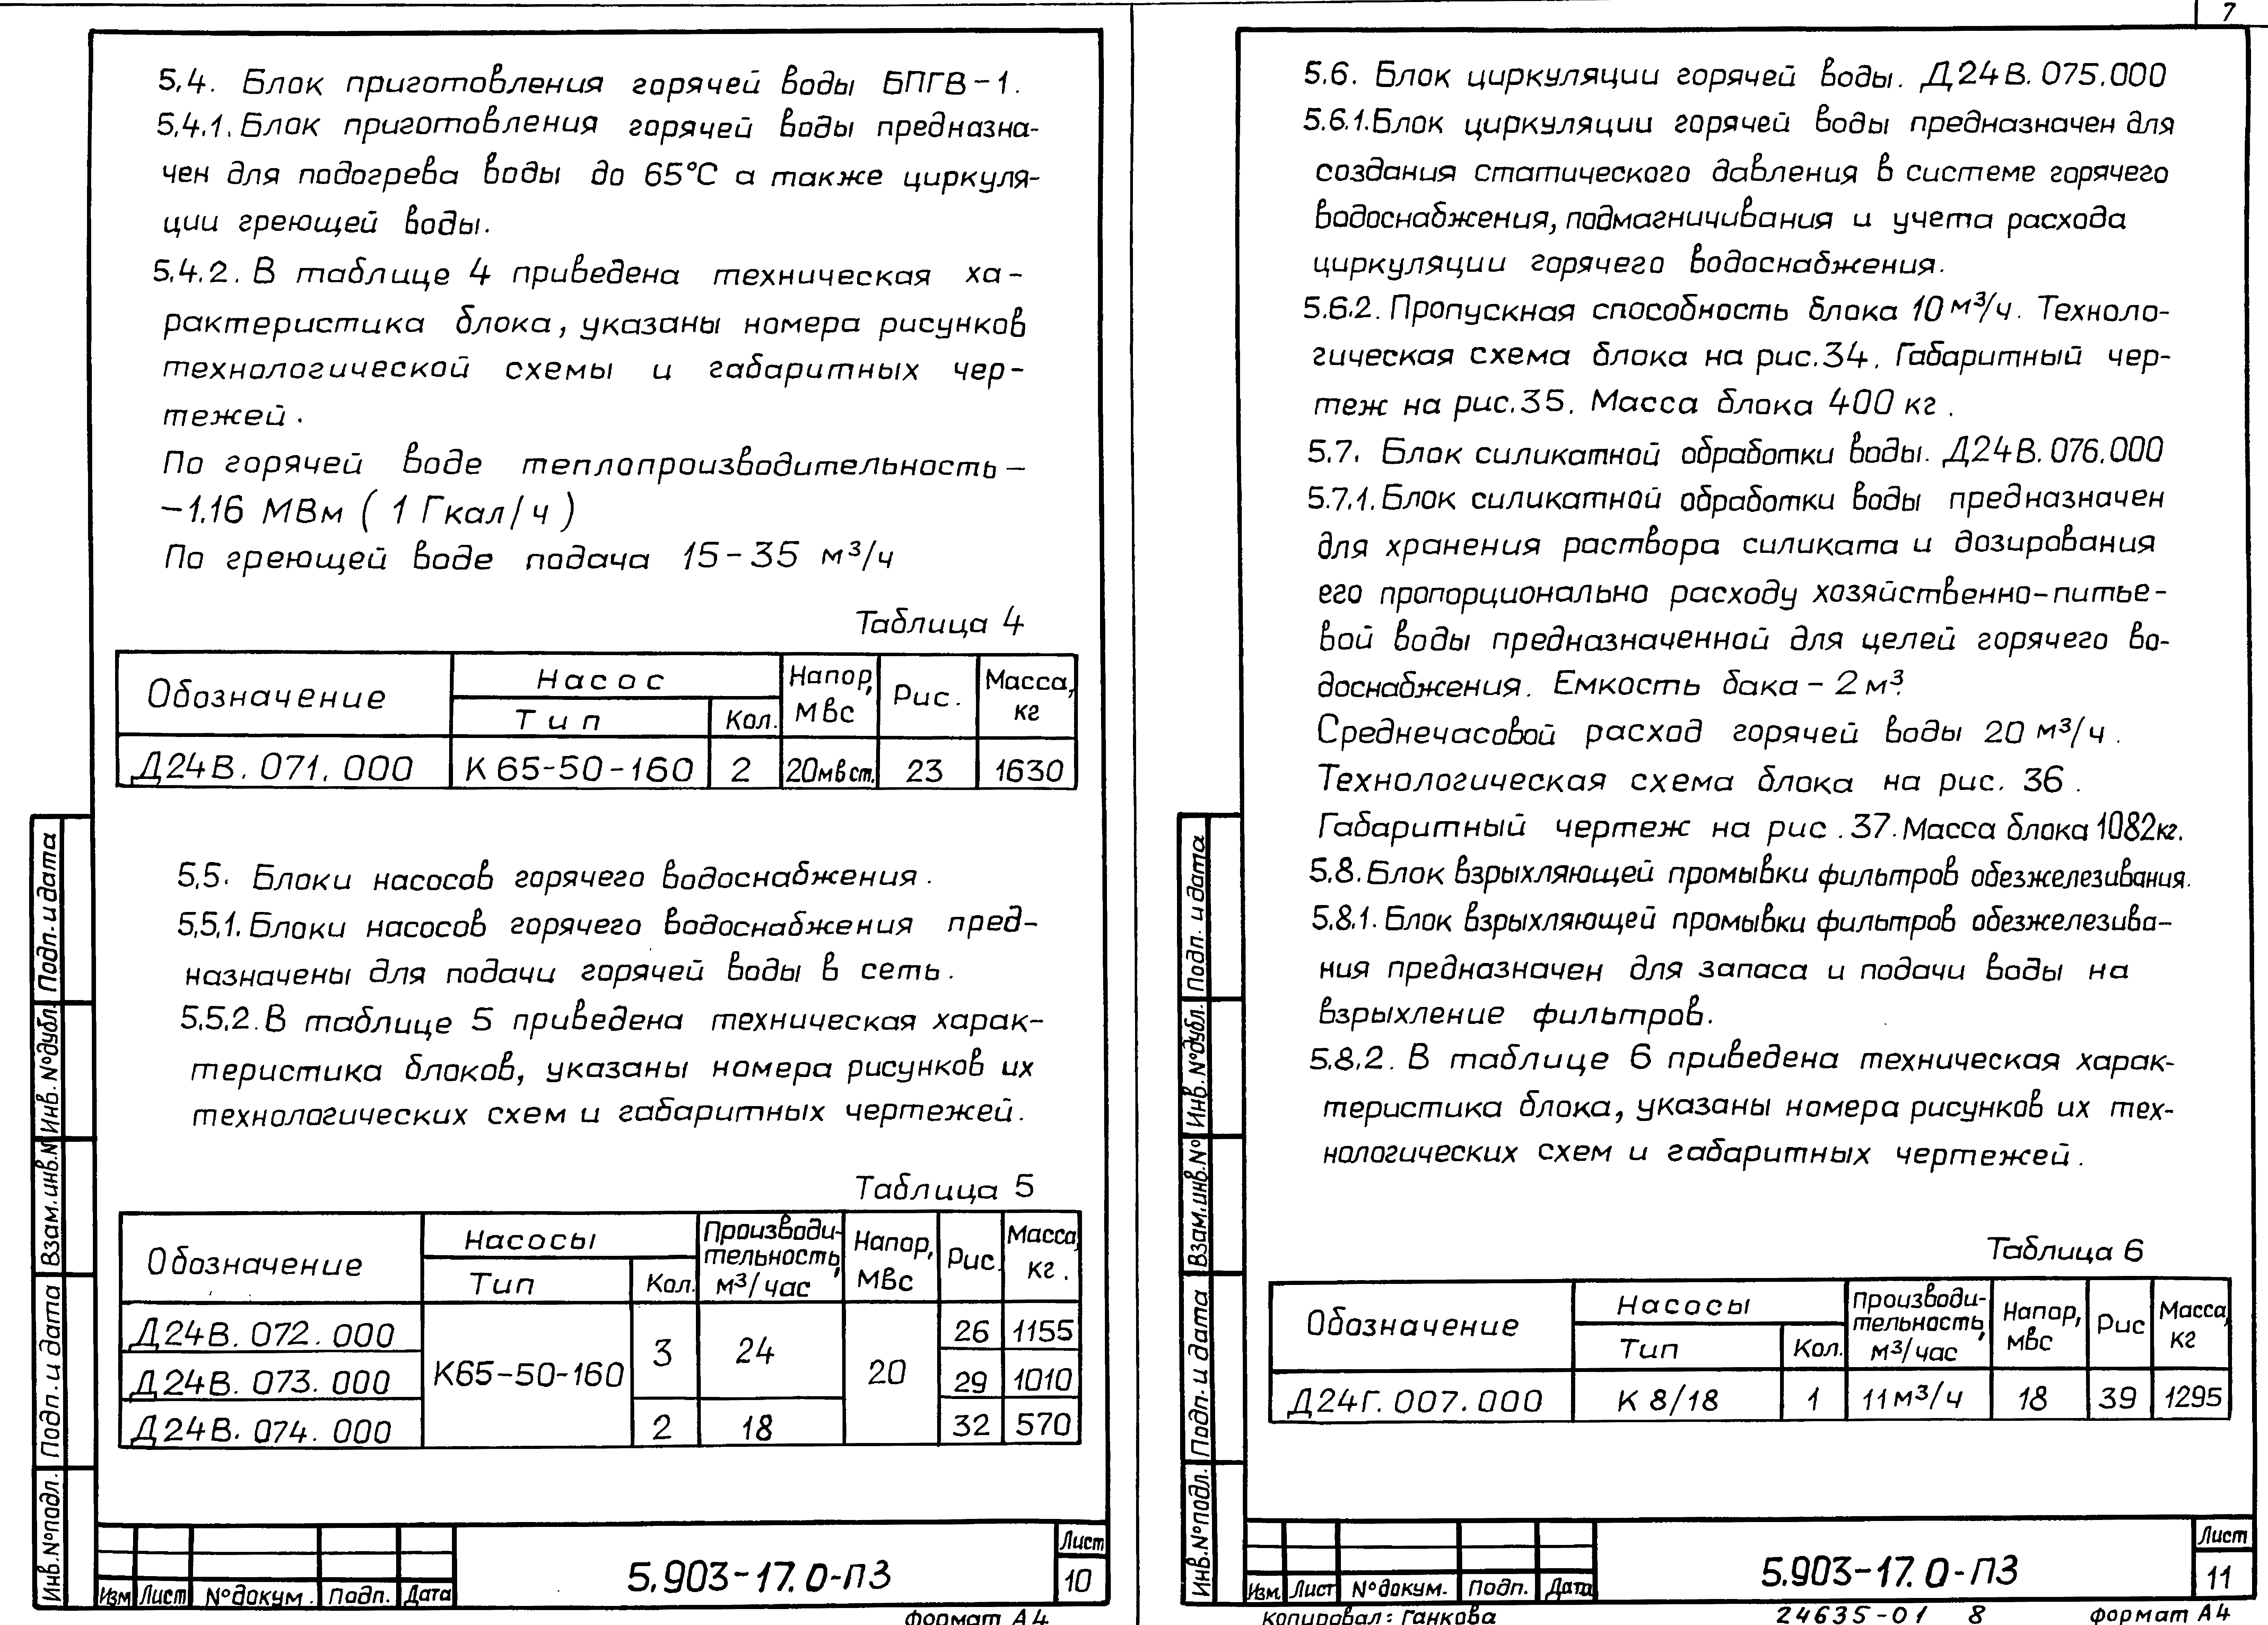 7
5.4. Блок приготовления горячей воды БПГВ-1.
5.4.1. Блок приготовления горячей воды предназна-
чен для подогрева воды до 65°С а также циркуля-
ции греющей воды.
5.4.2. В таблице 4 приведена техническая ха-
рактеристика блока, указаны номера рисунков
технологической схемы и габаритных чер-
тежей.
По горячей воде теплопроизводительность-
-1.16 МВт ( 1 Гкал/ч )
По греющей воде подача 15-35 м³/ч
Таблица 4
Обозначение
Насос
Тип
Кол.
Напор,
мвс
Рис.
Масса,
кг
Д24В.071.000
К 65-50-160
2
20мвст.
23
1630
5.5. Блоки насосов горячего водоснабжения.
5.5.1. Блоки насосов горячего водоснабжения пред-
назначены для подачи горячей воды в сеть.
5.5.2. В таблице 5 приведена техническая харак-
теристика блоков, указаны номера рисунков их
технологических схем и габаритных чертежей.
Таблица 5
Обозначение
Насосы
Тип
Кол.
Производи-
тельность,
м³/час
Напор,
мвс
Рис.
Масса,
кг.
Д24В.072.000
К65-50-160
3
24
20
26
1155
Д24В.073.000
29
1010
Д24В.074.000
2
18
32
570
Инв.№подл.
Подп. и дата
Взам.инв.№
Инв.№дубл.
Подп. и дата
Изм
Лист
№докум.
Подп.
Дата
5.903-17.0-ПЗ
Лист
10
формат А4
5.6. Блок циркуляции горячей воды. Д24В.075.000
5.6.1. Блок циркуляции горячей воды предназначен для
создания статического давления в системе горячего
водоснабжения, подмагничивания и учета расхода
циркуляции горячего водоснабжения.
5.6.2. Пропускная способность блока 10 м³/ч. Техноло-
гическая схема блока на рис.34. Габаритный чер-
теж на рис.35. Масса блока 400 кг.
5.7. Блок силикатной обработки воды. Д24В.076.000
5.7.1. Блок силикатной обработки воды предназначен
для хранения раствора силиката и дозирования
его пропорционально расходу хозяйственно-питье-
вой воды предназначенной для целей горячего во-
доснабжения. Емкость бака - 2м³.
Среднечасовой расход горячей воды 20 м³/ч.
Технологическая схема блока на рис. 36.
Габаритный чертеж на рис. 37. Масса блока 1082кг.
5.8. Блок взрыхляющей промывки фильтров обезжелезивания.
5.8.1. Блок взрыхляющей промывки фильтров обезжелезива-
ния предназначен для запаса и подачи воды на
взрыхление фильтров.
5.8.2. В таблице 6 приведена техническая харак-
теристика блока, указаны номера рисунков их тех-
нологических схем и габаритных чертежей.
Таблица 6
Обозначение
Насосы
Тип
Кол.
Производи-
тельность,
м³/час
Напор,
мвс
Рис
Масса,
кг
Д24Г.007.000
К 8/18
1
11м³/ч
18
39
1295
Инв.№подл.
Подп. и дата
Взам.инв.№
Инв.№дубл.
Подп. и дата
Изм.
Лист
№докум.
Подп.
Дата
5.903-17.0-ПЗ
Лист
11
Копировал: Ганкова
24635-01 8
формат А4